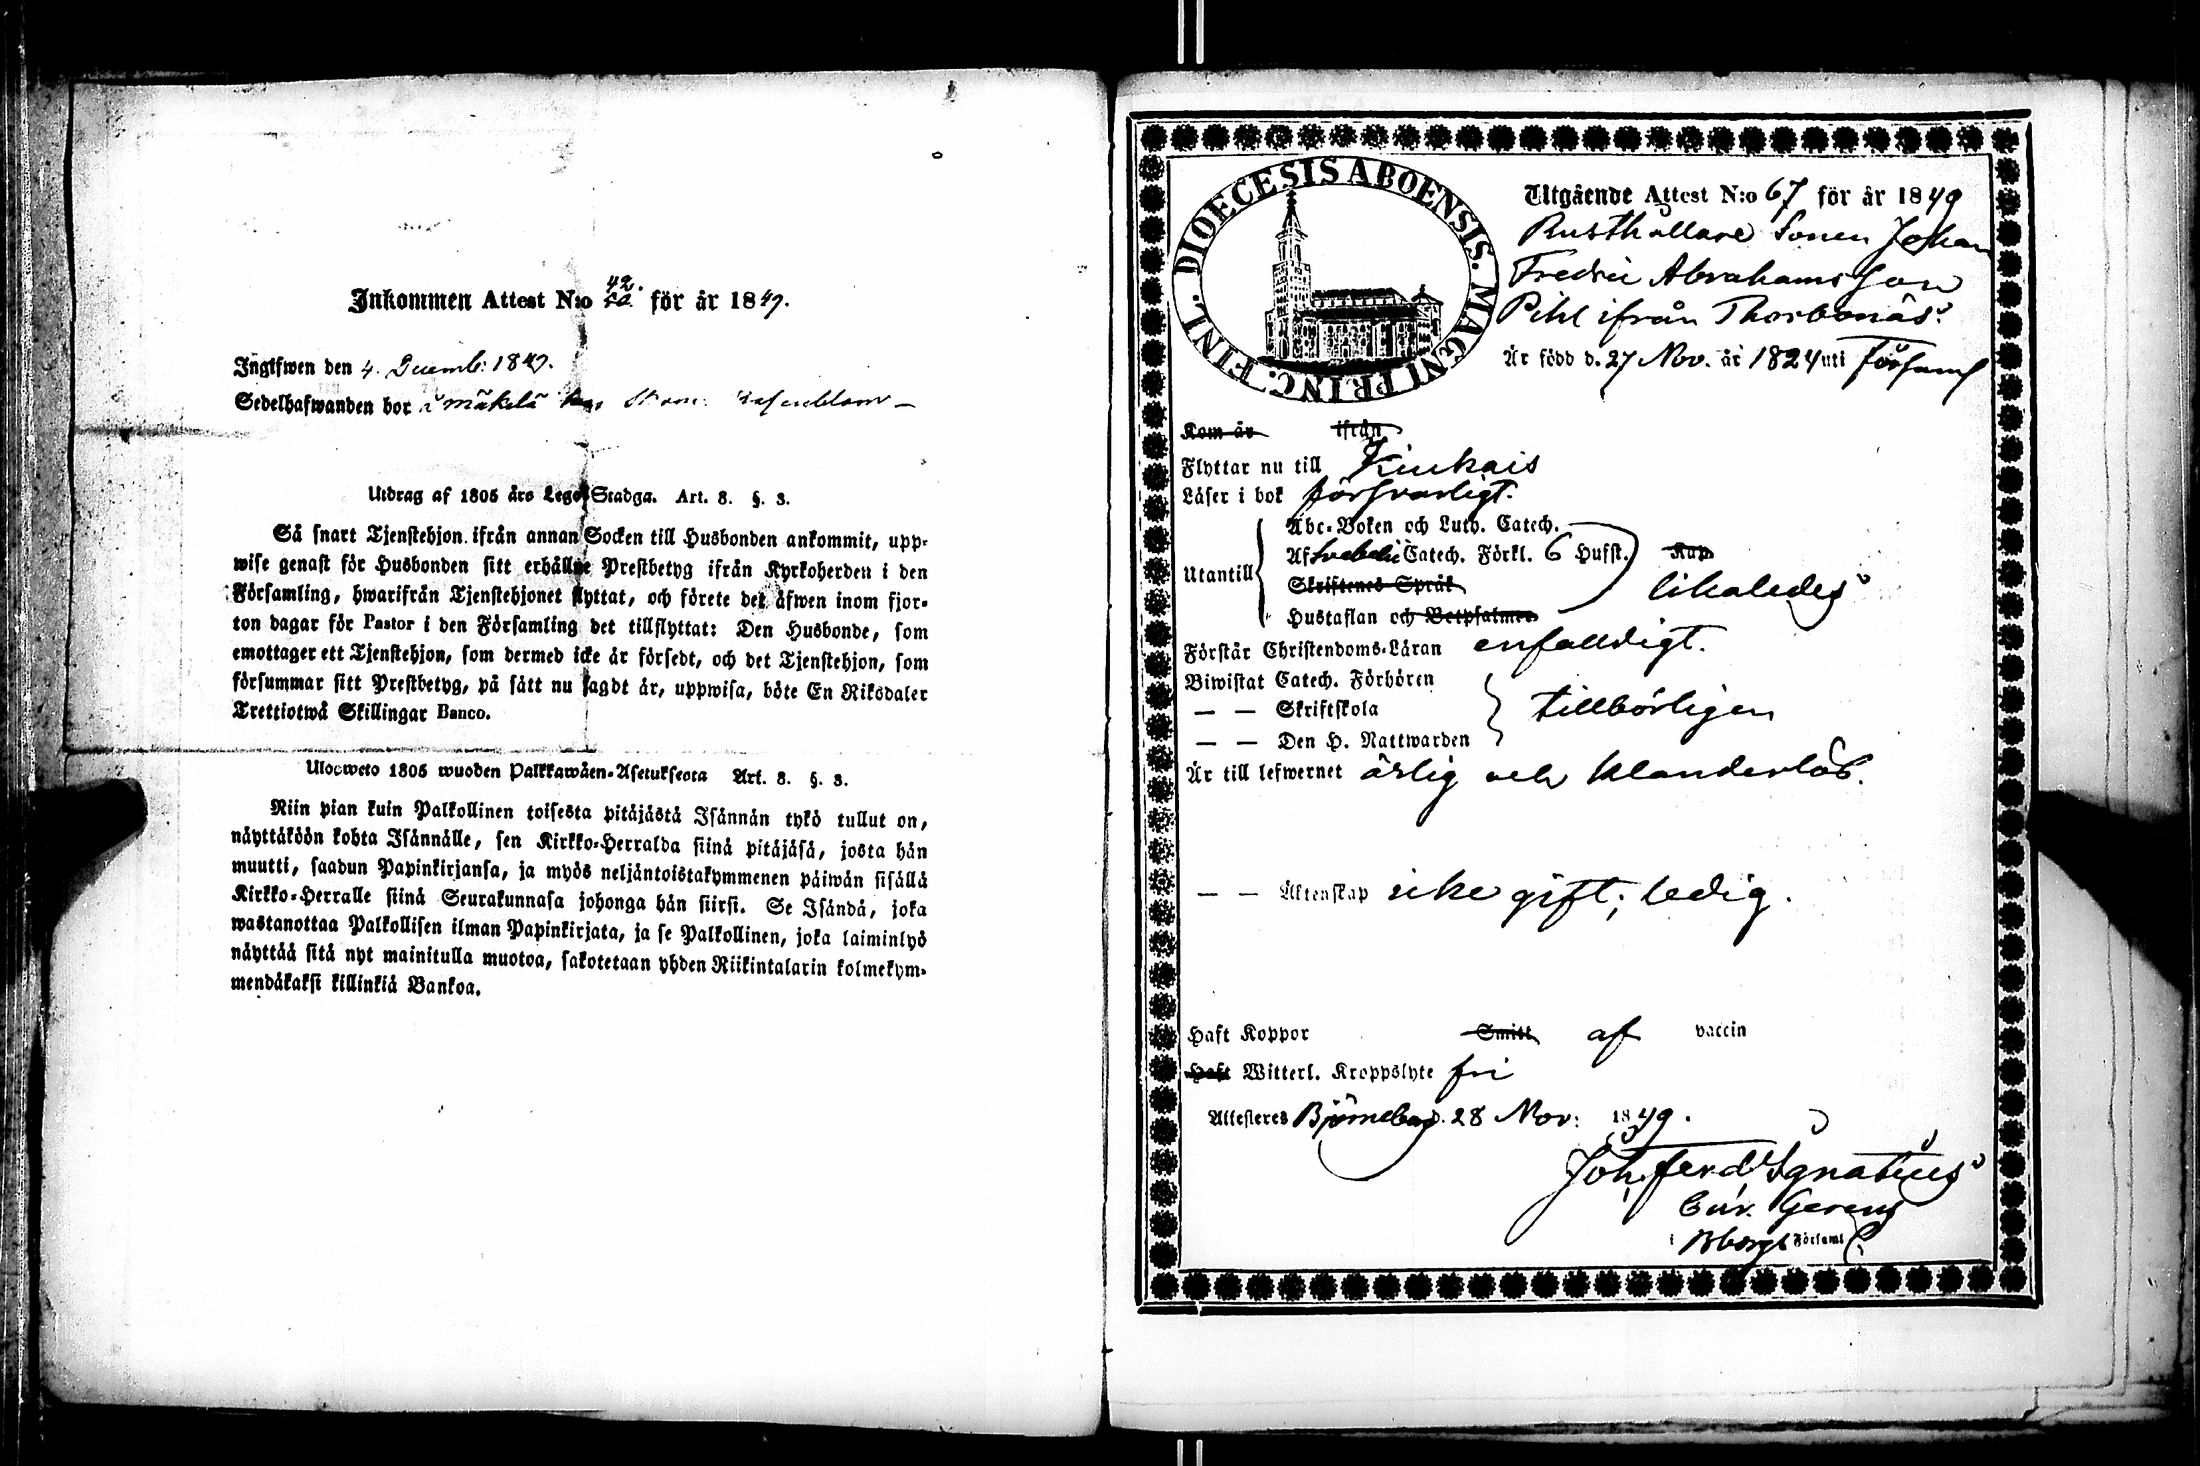 Inkommen Attest N:o 42. för år 1849.
Ingifwen den 4. Decemb: 1849.
Sedelhafwanden bor i Mäkelä hos
Utdrag af 1805 års Lego-Stadga. Art. 8. §. 3.
Så snart Tjenstehjon ifrån annan Socken till Husbonden ankommit, upp-
wise genast för Husbonden sitt erhållne Prestbetyg ifrån Kyrkoherden i den
Församling, hwarifrån Tjenstehjonet flyttat, och förete det äfwen inom fjor-
ton dagar för Pastor i den Församling det tillflyttat: Den Husbonde, som
emottager ett Tjenstehjon, som dermed icke är försedt, och det Tjenstehjon, som
försummar sitt Prestbetyg, på sätt nu sagdt är, uppwisa, böte En Riksdaler
Trettiotwå Skillingar Banco.
Ulosweto 1805 wuoden Palkkawäen-Asetuksesta Art. 8. §. 3.
Niin pian kuin Palkollinen toisesta pitäjästä Isännän tykö tullut on,
näyttäköön kohta Isännälle, sen Kirkko-Herralda siinä pitäjäsä, josta hän
muutti, saadun Papinkirjansa, ja myös neljäntoistakymmenen päiwän sisällä
Kirkko-Herralle siinä Seurakunnasa johonga hän siirsi. Se Isändä, joka
wastanottaa Palkollisen ilman Papinkirjata, ja se Palkollinen, joka laiminlyö
näyttää sitä nyt mainitulla muotoa, sakotetaan yhden Riikintalarin kolmekym-
mendäkaksi killinkiä Bankoa.
DIOECESIS ABOENSIS. MAGNI PRINC. FINL.
Utgående Attest N:o 67 för år 1849
Rusthållare Sonen Johan
Fredric Abrahamsson
Pihl ifrån Thorbonäs.
Är född d. 27 Nov. år 1824 uti Församl
Kom år ifrån
Flyttar nu till Kiukais
Läser i bok försvarligt.
Abc-Boken och Luth. Catech.
Af Svebelii Catech. Förkl. 6 Hufst. Kap
Utantill
Skriftenes Språk likaledes
Hustaflan och Botpsalmer
Förstår Christendoms-Läran enfalldigt.
Biwistat Catech. Förhören
— — Skriftskola tillbörligen
— — Den H. Nattwarden
Är till lefwernet ärlig och klanderlös.
— — Äktenskap icke gift; ledig.
Haft Koppor Smitt af vaccin
Haft Witterl. Kroppslyte fri
Attesteres Björneborg d. 28 Nov: 1849.
Joh. Ferd. Ignatius
Cur. Gerens
i Bborgs Församl